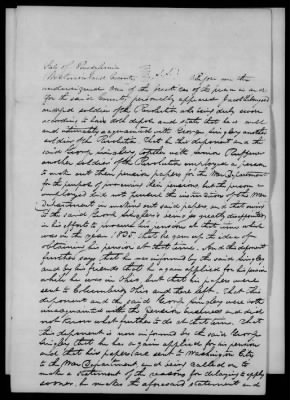 State of Pennsylvania
Westmoreland County S.S. Before me the
undersigned one of the Justices of the peace in and
for the said County personally appeared Jacob
an old soldier of the Revolution who being duly sworn
according to law doth depose and state that he is well
and intimately acquainted with George Singley another
soldier of the Revolution. That he this deponent and the
said George Singley together with
another soldier of the Revolution employed a person
to make out their pension papers for the War Department
for the purpose of procuring their pensions but the person so
employed did not pursue the instructions of the War
Department in making out said papers, and that owing
to the said George Singley's being so greatly disappointed
in his efforts to procure his pension at that time which
was in the year that he gave up the idea of
obtaining his pension at that time. And this deponent
further says that he was informed by the said Singley
and by his friends that he again applied for his pension
while he was in Ohio, but that his papers were
sent to and there left. That this
deponent and the said George Singley were both
unacquainted with the Pension business and did
not know what further to do at that time. That
this deponent is now informed by the said George
Singley that he has again applied for his pension
and that his papers are sent to Washington City
to the War Department and being called on to
make a statement of the reasons for delaying to apply
sooner, he makes the aforesaid statement and